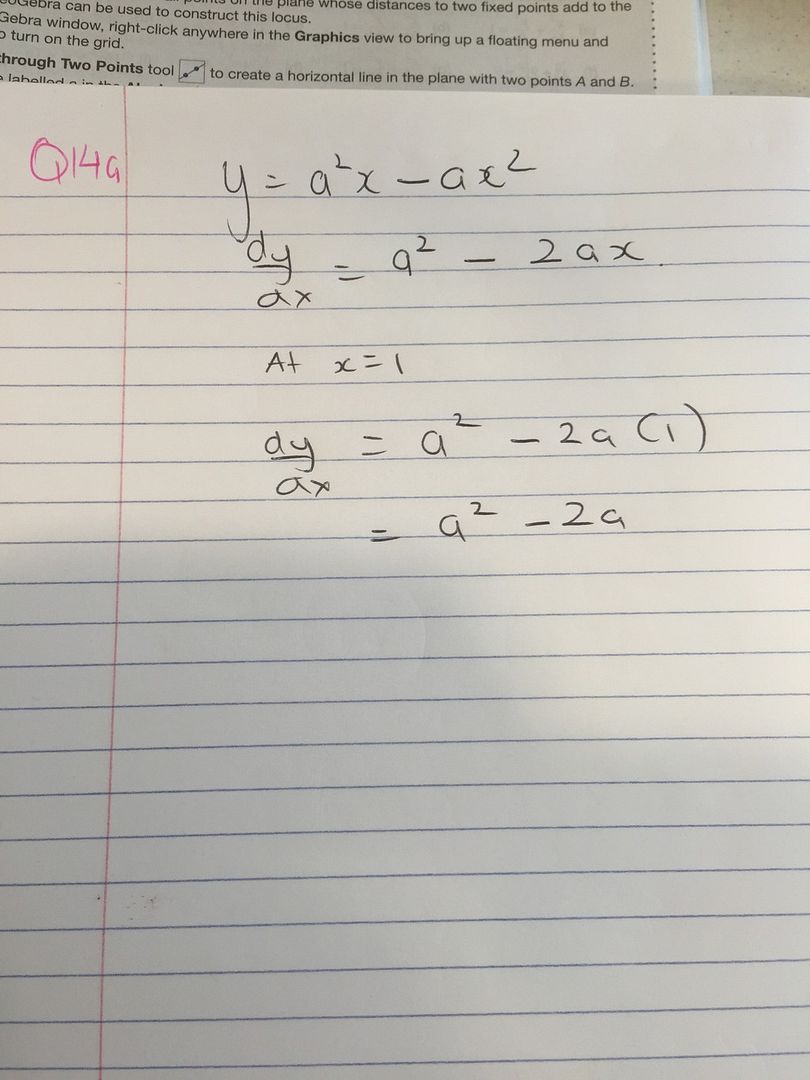 Gebra can be used to construct this locus.
the plane whose distances to two fixed points add to the
Gebra window, right-click anywhere in the Graphics view to bring up a floating menu and
o turn on the grid.
through Two Points tool to create a horizontal line in the plane with two points A and B.
Q14a
y = a²x - ax²
dy/dx = a² - 2ax
At x=1
dy/dx = a² - 2a (1)
= a² - 2a